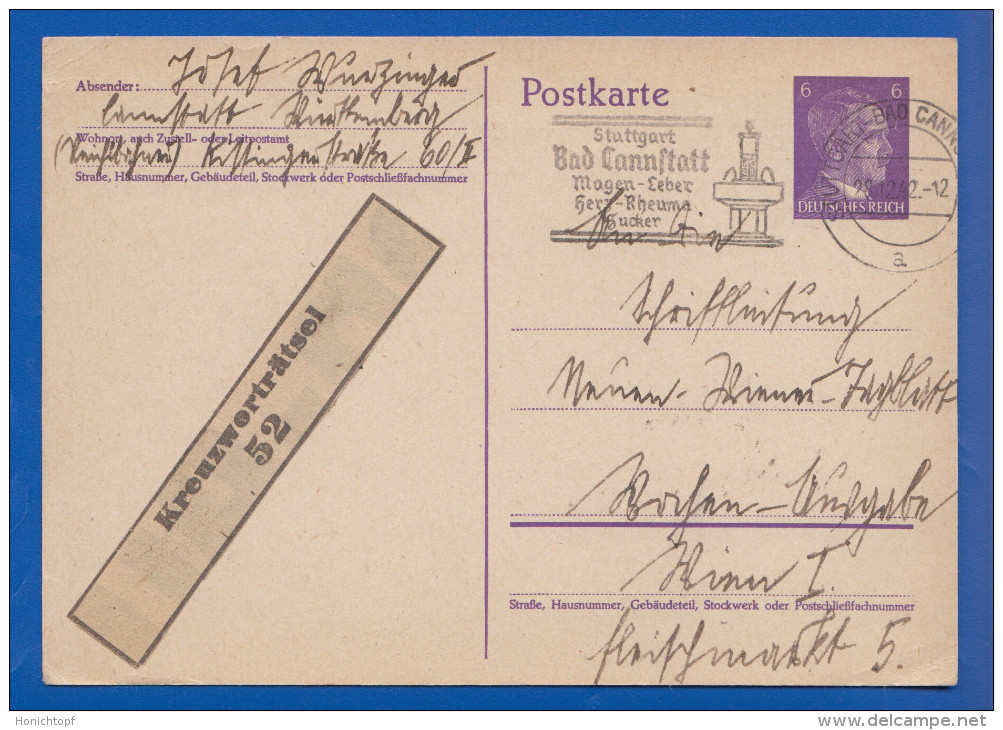 Absender: Josef Wurzinger
Cannstatt Württemberg
Wohnort, auch Zustell- oder Leitpostamt
straße 60/II
Straße, Hausnummer, Gebäudeteil, Stockwerk oder Postschließfachnummer
Kreuzworträtsel
52
Postkarte
6 6
DEUTSCHES REICH
Stuttgart
Bad Cannstatt
Magen-Leber
Herz-Rheuma
Zucker
STUTTGART-BAD CANNS
28.12.42.-12
a
An die
Schriftleitung
Neuen-Wiener-Tagblatt
Wochen-Ausgabe
Wien I.
Straße, Hausnummer, Gebäudeteil, Stockwerk oder Postschließfachnummer
Fleischmarkt 5.
Honichtopf
delcampe.net